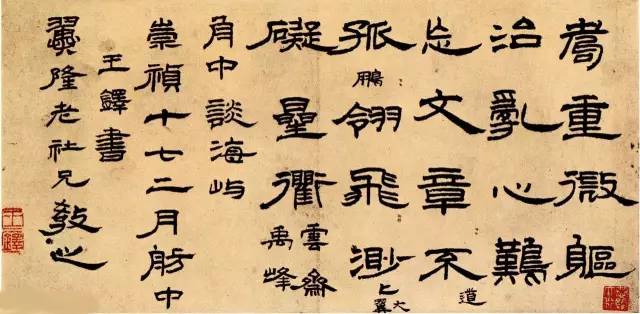 重微軀
治亂心難
忘文章不道
孤鵬翎飛渺上大翼
礙星衢雲齋禹峰
角中談海嶼
崇禎十七二月舫中
王鐸書
翼隆老社兄教之
王鐸